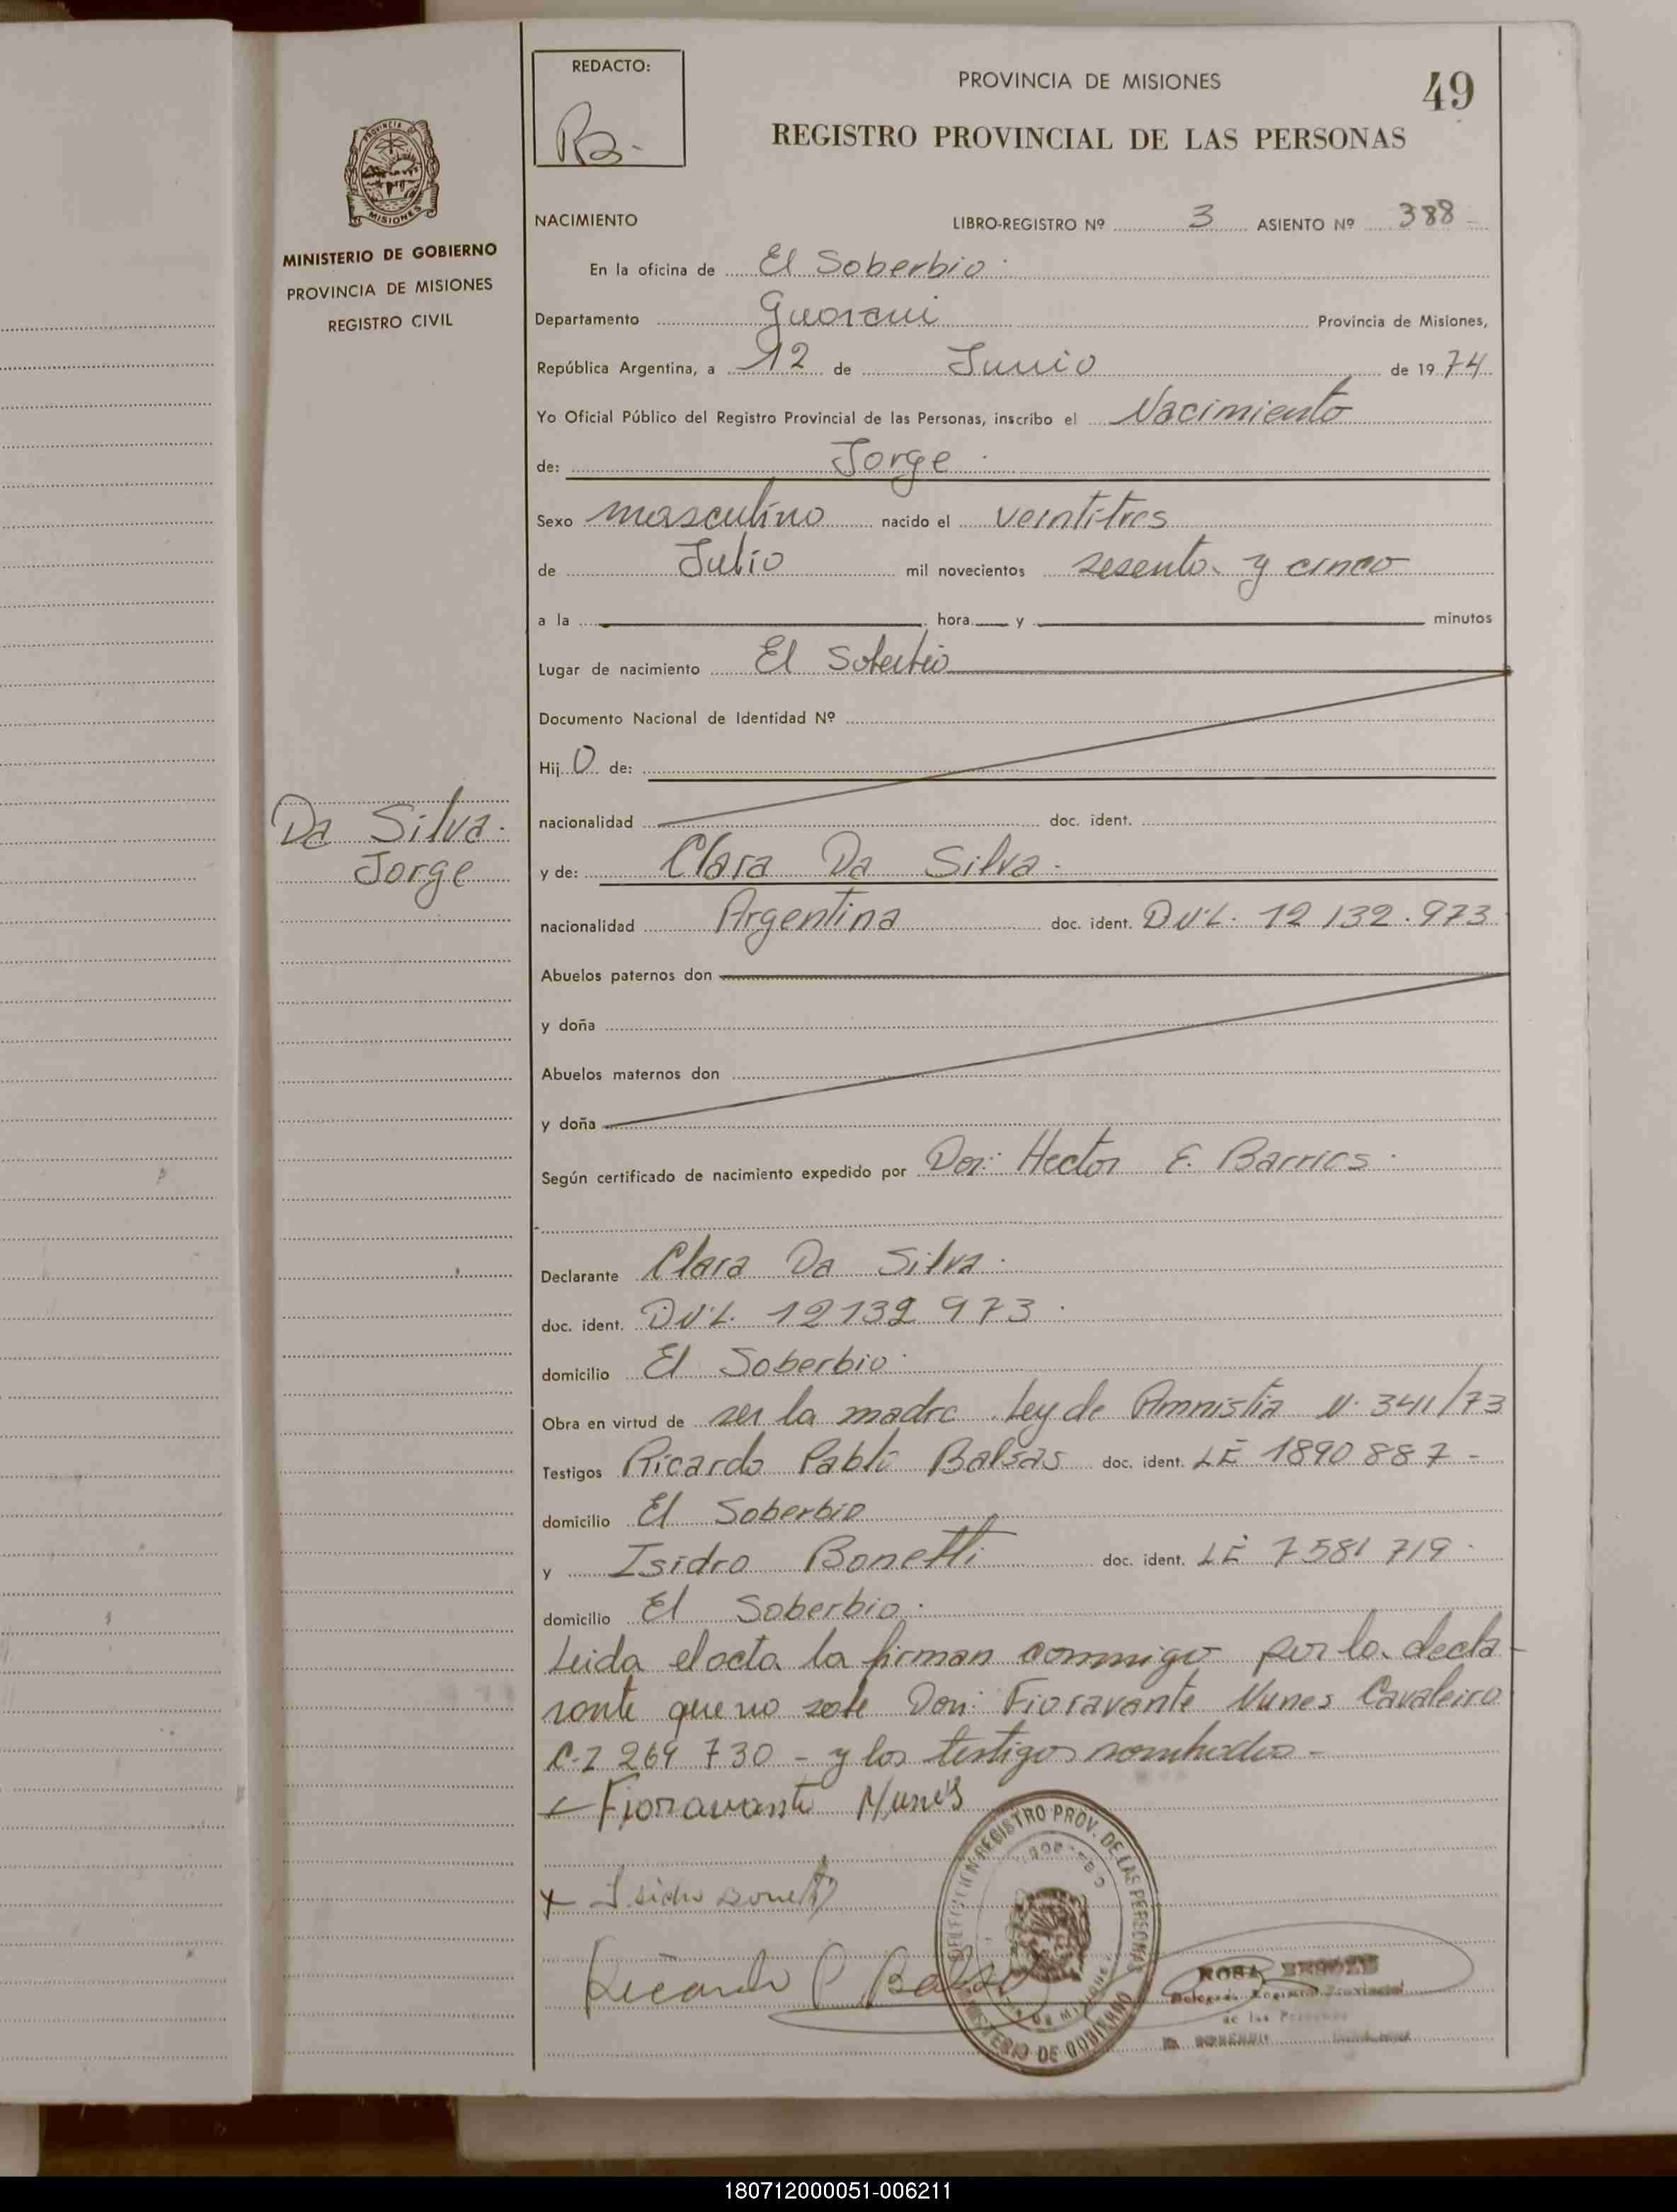 REDACTO:
PROVINCIA DE MISIONES
49
REGISTRO PROVINCIAL DE LAS PERSONAS
MINISTERIO DE GOBIERNO
PROVINCIA DE MISIONES
REGISTRO CIVIL
NACIMIENTO LIBRO-REGISTRO Nº 3 ASIENTO Nº 388
En la oficina de El Soberbio
Departamento Guarani Provincia de Misiones,
República Argentina, a 12 de Junio de 1974
Yo Oficial Público del Registro Provincial de las Personas, inscribo el Nacimiento
de: Jorge
Sexo masculino nacido el veintitres
de Julio mil novecientos sesenta y cinco
a la hora y minutos
Lugar de nacimiento El Soberbio
Documento Nacional de Identidad Nº
Hij o de:
nacionalidad doc. ident.
Da Silva
Jorge
y de: Clara Da Silva
nacionalidad Argentina doc. ident. D.N.I. 12 132.973
Abuelos paternos don
y doña
Abuelos maternos don
y doña
Según certificado de nacimiento expedido por Don: Hector E. Barrios
Declarante Clara Da Silva
doc. ident. D.N.I. 12 132 973
domicilio El Soberbio
Obra en virtud de ser la madre. Ley de Amnistia N. 3411/73
Testigos Ricardo Pablo Balsas doc. ident. LE 1890 887
domicilio El Soberbio
y Isidro Bonetti doc. ident. LE 7581 719
domicilio El Soberbio
Leida el acta la firman conmigo por la decla-
rante que no sabe Don: Fioravante Nunes Cavaleiro
C.I 269 730 - y los testigos nombrados -
Fioravante Nunes
Isidro Bonetti
Ricardo P Balsas
REGISTRO PROV. DE LAS PERSONAS
MINISTERIO DE GOBIERNO
ROSA
Registro Provincial
de las Personas
180712000051-006211